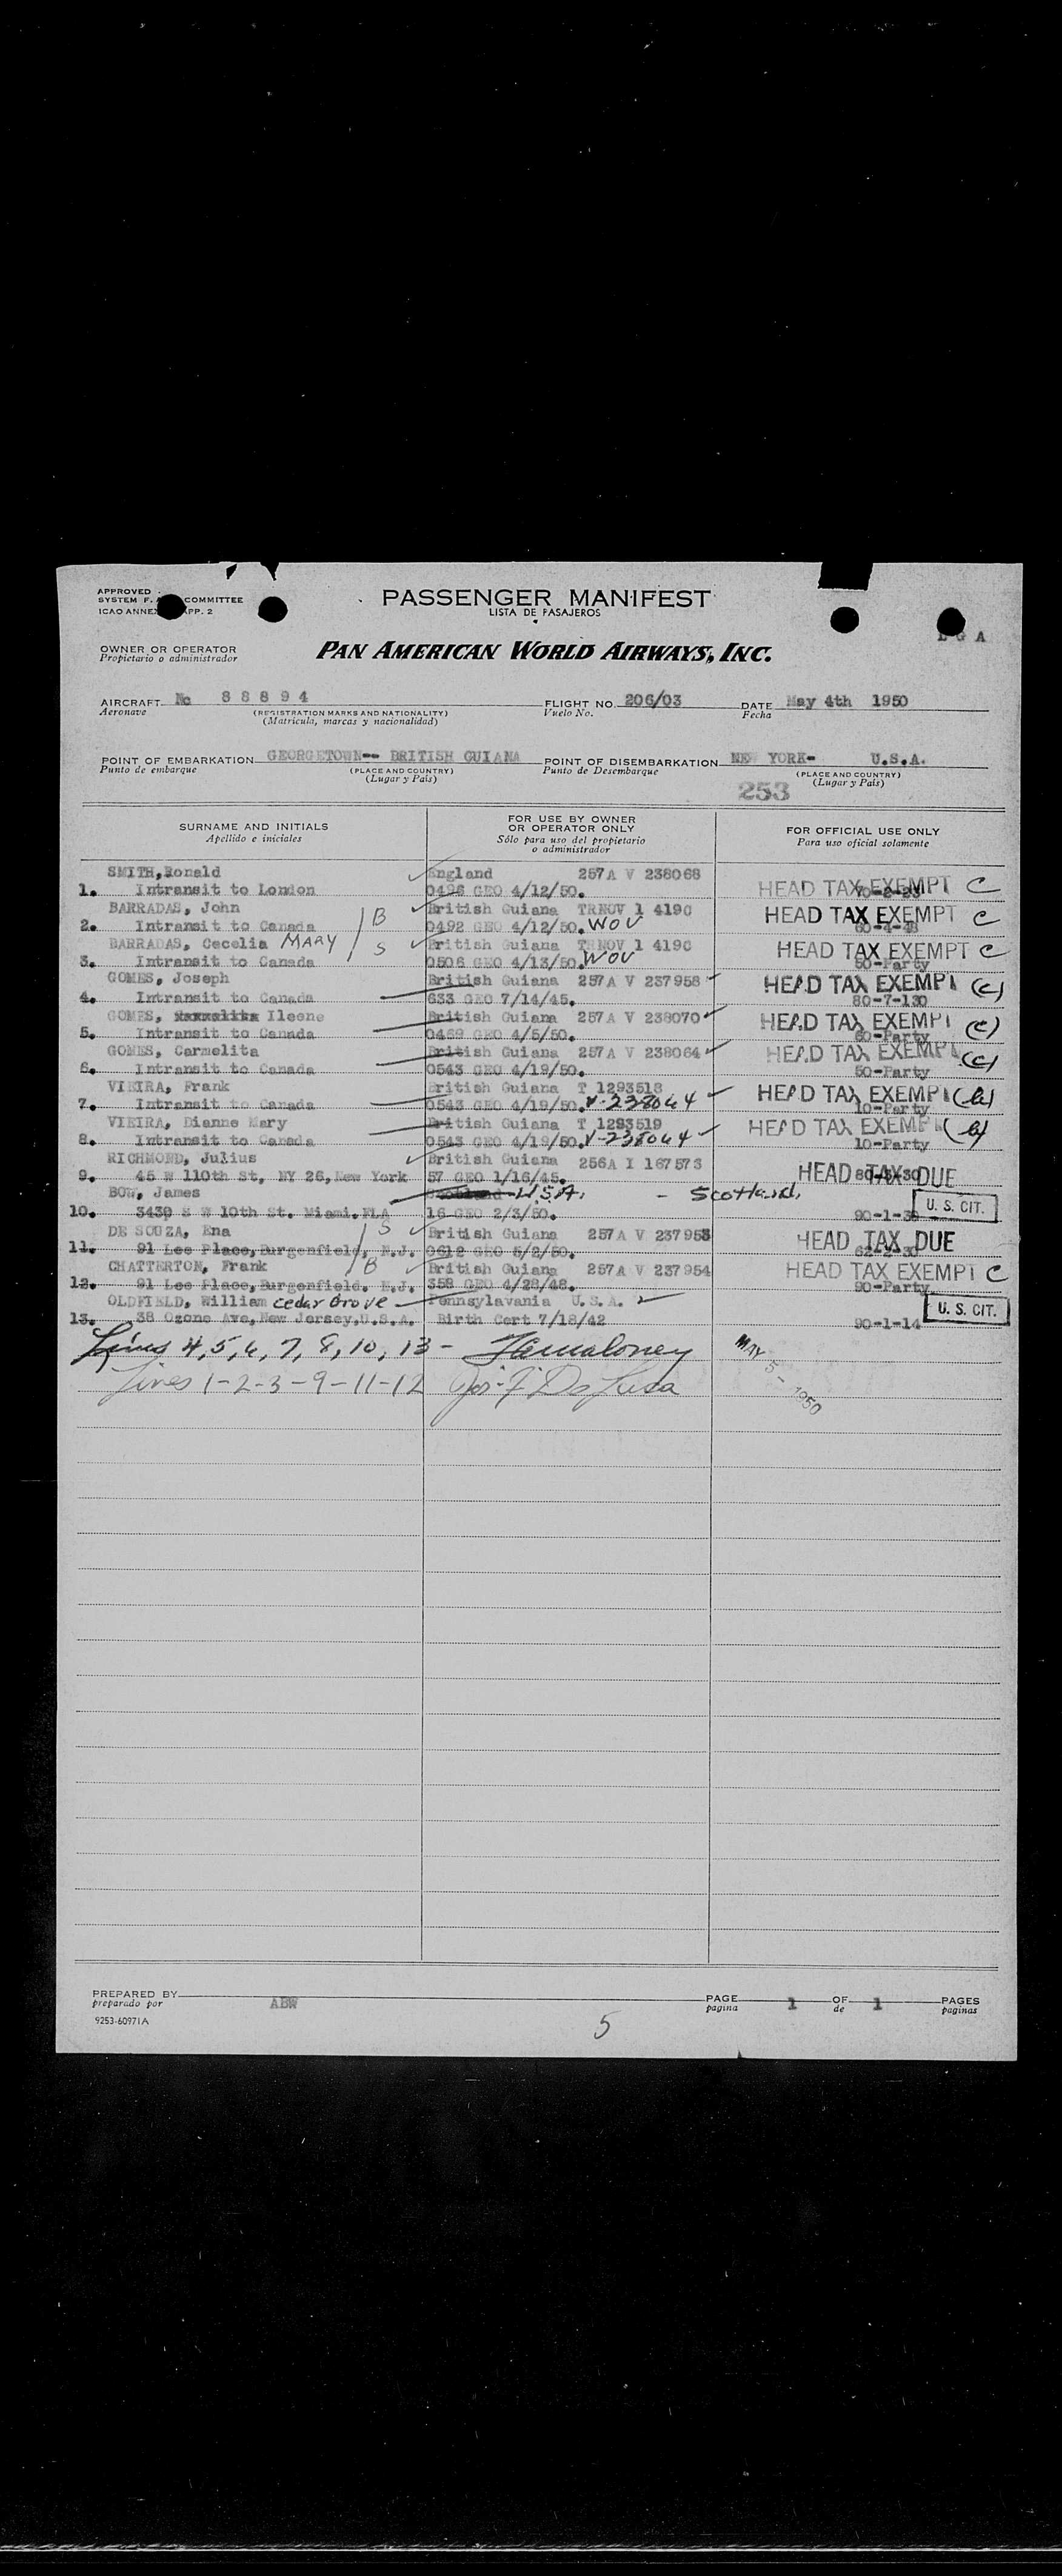 APPROVED
SYSTEM F. A COMMITTEE
ICAO ANNEX APP. 2
PASSENGER MANIFEST
LISTA DE PASAJEROS
G A
OWNER OR OPERATOR
Propietario o administrador
PAN AMERICAN WORLD AIRWAYS, INC.
AIRCRAFT Nc 88894 FLIGHT NO. 206/03 DATE May 4th 1950
Aeronave (REGISTRATION MARKS AND NATIONALITY) Vuelo No. Fecha
(Matricula, marcas y nacionalidad)
POINT OF EMBARKATION GEORGETOWN-- BRITISH GUIANA POINT OF DISEMBARKATION NEW YORK- U.S.A.
Punto de embarque (PLACE AND COUNTRY) Punto de Desembarque (PLACE AND COUNTRY)
(Lugar y País) (Lugar y País)
253
SURNAME AND INITIALS FOR USE BY OWNER OR OPERATOR ONLY FOR OFFICIAL USE ONLY
Apellido e iniciales Sólo para uso del propietario o administrador Para uso oficial solamente
SMITH, Ronald England 257A V 238068
1. Intransit to London 0496 GEO 4/12/50. HEAD TAX EXEMPT C
BARRADAS, John B British Guiana TRNOV 1 419C
2. Intransit to Canada 0492 GEO 4/12/50. WOV HEAD TAX EXEMPT C 60-4-48
BARRADAS, Cecelia MARY S British Guiana TRNOV 1 419C
3. Intransit to Canada 0506 GEO 4/13/50. WOV HEAD TAX EXEMPT C 50-Party
GOMES, Joseph British Guiana 257A V 237958
4. Intransit to Canada 633 GEO 7/14/45. HEAD TAX EXEMPT (c) 80-7-130
GOMES, Ileene British Guiana 257A V 238070
5. Intransit to Canada 0459 GEO 4/5/50. HEAD TAX EXEMPT (c) 60-Party
GOMES, Carmelita British Guiana 257A V 238064
6. Intransit to Canada 0543 GEO 4/19/50. HEAD TAX EXEMPT (c) 50-Party
VIEIRA, Frank British Guiana T 1293518
7. Intransit to Canada 0543 GEO 4/19/50. V-238064 HEAD TAX EXEMPT (b) 10-Party
VIEIRA, Dianne Mary British Guiana T 1293519
8. Intransit to Canada 0543 GEO 4/19/50. V-238064 HEAD TAX EXEMPT (b) 10-Party
RICHMOND, Julius British Guiana 256A I 167573
9. 45 W 110th St, NY 26, New York 57 GEO 1/16/45. HEAD TAX DUE
BOW, James U.S.A. - Scotland.
10. 3439 S W 10th St. Miami. FLA 16 GEO 2/3/50. 90-1-30 U. S. CIT.
DE SOUZA, Ena S British Guiana 257A V 237953
11. 91 Lee Place, Burgenfield, N.J. 0612 GEO 5/2/50. HEAD TAX DUE
CHATTERTON, Frank B British Guiana 257A V 237954
12. 91 Lee Place, Burgenfield. N.J. 358 GEO 4/28/48. HEAD TAX EXEMPT C 90-Party
OLDFIELD, William Cedar Grove Pennsylavania U.S.A.
13. 38 Ozone Ave, New Jersey, U.S.A. Birth Cert 7/18/42 90-1-14 U. S. CIT.
Lines 4, 5, 6, 7, 8, 10, 13 - Hamaloney
Lines 1-2-3-9-11-12 Jos. F. De Luca
MAY 5 - 1950
PREPARED BY ABW PAGE 1 OF 1 PAGES
preparado por pagina de paginas
9253-60971A
5